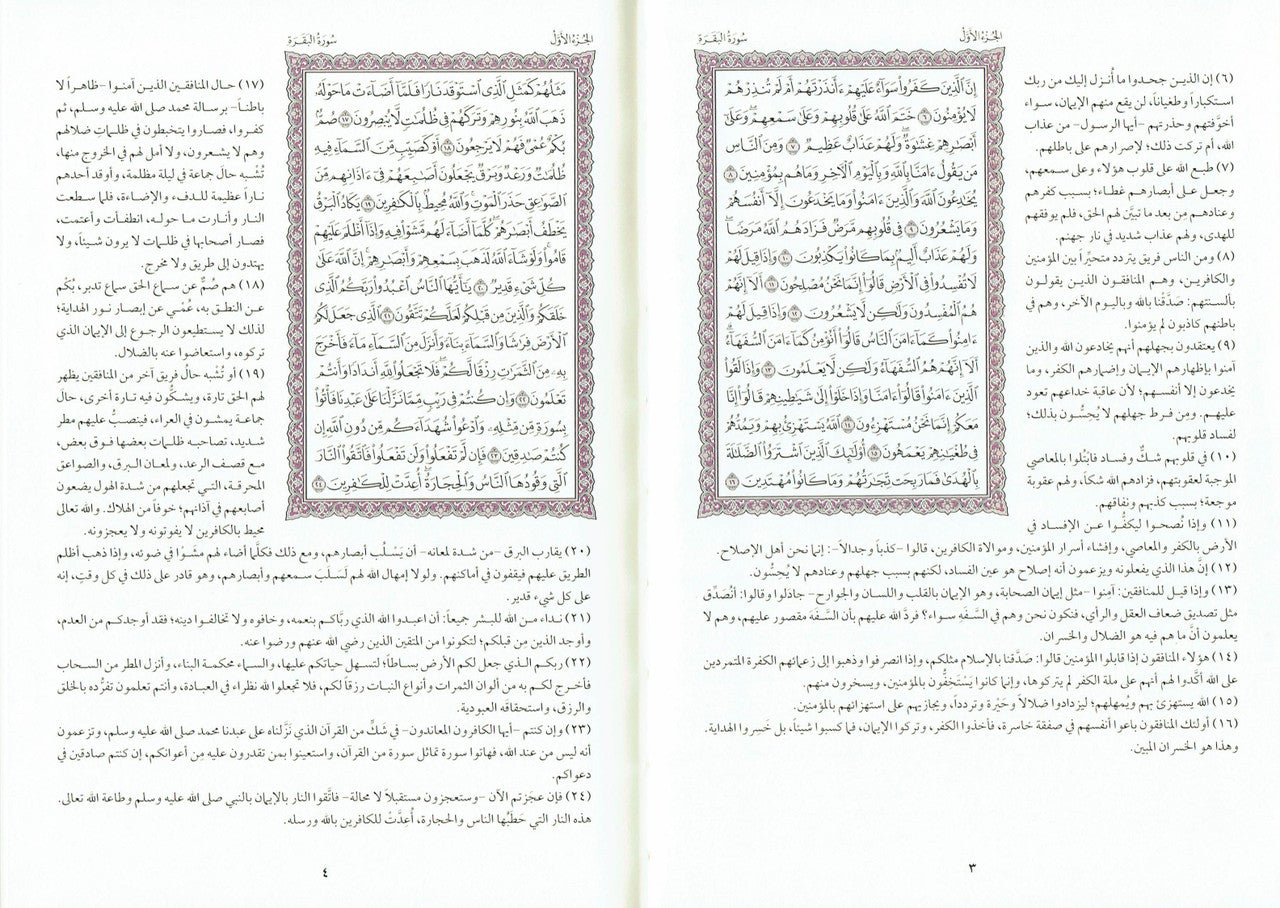 الجزء الأول
سورة البقرة
إِنَّ ٱلَّذِينَ كَفَرُواْ سَوَآءٌ عَلَيْهِمْ ءَأَنذَرْتَهُمْ أَمْ لَمْ تُنذِرْهُمْ
لَا يُؤْمِنُونَ ٦ خَتَمَ ٱللَّهُ عَلَىٰ قُلُوبِهِمْ وَعَلَىٰ سَمْعِهِمْۖ وَعَلَىٰٓ
أَبْصَٰرِهِمْ غِشَٰوَةٌۖ وَلَهُمْ عَذَابٌ عَظِيمٌ ٧ وَمِنَ ٱلنَّاسِ
مَن يَقُولُ ءَامَنَّا بِٱللَّهِ وَبِٱلْيَوْمِ ٱلْأٓخِرِ وَمَا هُم بِمُؤْمِنِينَ ٨
يُخَٰدِعُونَ ٱللَّهَ وَٱلَّذِينَ ءَامَنُواْ وَمَا يَخْدَعُونَ إِلَّآ أَنفُسَهُمْ
وَمَا يَشْعُرُونَ ٩ فِى قُلُوبِهِم مَّرَضٌ فَزَادَهُمُ ٱللَّهُ مَرَضًاۖ
وَلَهُمْ عَذَابٌ أَلِيمٌۢ بِمَا كَانُواْ يَكْذِبُونَ ١٠ وَإِذَا قِيلَ لَهُمْ
لَا تُفْسِدُواْ فِى ٱلْأَرْضِ قَالُوٓاْ إِنَّمَا نَحْنُ مُصْلِحُونَ ١١ أَلَآ إِنَّهُمْ
هُمُ ٱلْمُفْسِدُونَ وَلَٰكِن لَّا يَشْعُرُونَ ١٢ وَإِذَا قِيلَ لَهُمْ
ءَامِنُواْ كَمَآ ءَامَنَ ٱلنَّاسُ قَالُوٓاْ أَنُؤْمِنُ كَمَآ ءَامَنَ ٱلسُّفَهَآءُۗ
أَلَآ إِنَّهُمْ هُمُ ٱلسُّفَهَآءُ وَلَٰكِن لَّا يَعْلَمُونَ ١٣ وَإِذَا لَقُواْ
ٱلَّذِينَ ءَامَنُواْ قَالُوٓاْ ءَامَنَّا وَإِذَا خَلَوْاْ إِلَىٰ شَيَٰطِينِهِمْ قَالُوٓاْ إِنَّا
مَعَكُمْ إِنَّمَا نَحْنُ مُسْتَهْزِءُونَ ١٤ ٱللَّهُ يَسْتَهْزِئُ بِهِمْ وَيَمُدُّهُمْ
فِى طُغْيَٰنِهِمْ يَعْمَهُونَ ١٥ أُوْلَٰٓئِكَ ٱلَّذِينَ ٱشْتَرَوُاْ ٱلضَّلَٰلَةَ
بِٱلْهُدَىٰ فَمَا رَبِحَت تِّجَٰرَتُهُمْ وَمَا كَانُواْ مُهْتَدِينَ ١٦
(٦) إن الذين جحدوا ما أُنزل إليك من ربك
استكباراً وطغياناً، لن يقع منهم الإيمان، سواء
أخوَّفتهم وحذرتهم -أيها الرسول- من عذاب
الله، أم تركت ذلك؛ لإصرارهم على باطلهم.
(٧) طبع الله على قلوب هؤلاء وعلى سمعهم،
وجعل على أبصارهم غطاء؛ بسبب كفرهم
وعنادهم مِن بعد ما تبيَّن لهم الحق، فلم يوفقهم
للهدى، ولهم عذاب شديد في نار جهنم.
(٨) ومن الناس فريق يتردد متحيِّراً بين المؤمنين
والكافرين، وهم المنافقون الذين يقولون
بألسنتهم: صَدَّقنا بالله وباليوم الآخر، وهم في
باطنهم كاذبون لم يؤمنوا.
(٩) يعتقدون بجهلهم أنهم يخادعون الله والذين
آمنوا بإظهارهم الإيمان وإضمارهم الكفر، وما
يخدعون إلا أنفسهم؛ لأن عاقبة خداعهم تعود
عليهم. ومِن فرط جهلهم لا يُحِسُّون بذلك؛
لفساد قلوبهم.
(١٠) في قلوبهم شكٌّ وفساد فابْتُلوا بالمعاصي
الموجبة لعقوبتهم، فزادهم الله شكاً، ولهم عقوبة
موجعة؛ بسبب كذبهم ونفاقهم.
(١١) وإذا نُصحوا ليكفُّوا عن الإفساد في
الأرض بالكفر والمعاصي، وإفشاء أسرار المؤمنين، وموالاة الكافرين، قالوا -كذباً وجدالاً-: إنما نحن أهل الإصلاح.
(١٢) إنَّ هذا الذي يفعلونه ويزعمون أنه إصلاح هو عين الفساد، لكنهم بسبب جهلهم وعنادهم لا يُحِسُّون.
(١٣) وإذا قيل للمنافقين: آمِنوا -مثل إيمان الصحابة، وهو الإيمان بالقلب واللسان والجوارح- جادَلوا وقالوا: أنُصَدِّق
مثل تصديق ضعاف العقل والرأي، فنكون نحن وهم في السَّفَهِ سواء؟ فردَّ الله عليهم بأن السَّفَهَ مقصور عليهم، وهم لا
يعلمون أنَّ ما هم فيه هو الضلال والخسران.
(١٤) هؤلاء المنافقون إذا قابلوا المؤمنين قالوا: صَدَّقنا بالإسلام مثلكم، وإذا انصرفوا وذهبوا إلى زعمائهم الكفرة المتمردين
على الله أكَّدوا لهم أنهم على ملة الكفر لم يتركوها، وإنما كانوا يَسْتَخِفُّون بالمؤمنين، ويسخرون منهم.
(١٥) الله يستهزئ بهم ويُمهلهم؛ ليزدادوا ضلالاً وحَيْرة وتردداً، ويجازيهم على استهزائهم بالمؤمنين.
(١٦) أولئك المنافقون باعوا أنفسهم في صفقة خاسرة، فأخذوا الكفر، وتركوا الإيمان، فما كسبوا شيئاً، بل خَسِروا الهداية.
وهذا هو الخسران المبين.
٣
الجزء الأول
سورة البقرة
مَثَلُهُمْ كَمَثَلِ ٱلَّذِى ٱسْتَوْقَدَ نَارًا فَلَمَّآ أَضَآءَتْ مَا حَوْلَهُۥ
ذَهَبَ ٱللَّهُ بِنُورِهِمْ وَتَرَكَهُمْ فِى ظُلُمَٰتٍ لَّا يُبْصِرُونَ ١٧ صُمٌّۢ
بُكْمٌ عُمْىٌ فَهُمْ لَا يَرْجِعُونَ ١٨ أَوْ كَصَيِّبٍ مِّنَ ٱلسَّمَآءِ فِيهِ
ظُلُمَٰتٌ وَرَعْدٌ وَبَرْقٌ يَجْعَلُونَ أَصَٰبِعَهُمْ فِىٓ ءَاذَانِهِم مِّنَ
ٱلصَّوَٰعِقِ حَذَرَ ٱلْمَوْتِۚ وَٱللَّهُ مُحِيطٌۢ بِٱلْكَٰفِرِينَ ١٩ يَكَادُ ٱلْبَرْقُ
يَخْطَفُ أَبْصَٰرَهُمْۖ كُلَّمَآ أَضَآءَ لَهُم مَّشَوْاْ فِيهِ وَإِذَآ أَظْلَمَ عَلَيْهِمْ
قَامُواْۚ وَلَوْ شَآءَ ٱللَّهُ لَذَهَبَ بِسَمْعِهِمْ وَأَبْصَٰرِهِمْۚ إِنَّ ٱللَّهَ عَلَىٰ
كُلِّ شَىْءٍ قَدِيرٌ ٢٠ يَٰٓأَيُّهَا ٱلنَّاسُ ٱعْبُدُواْ رَبَّكُمُ ٱلَّذِى
خَلَقَكُمْ وَٱلَّذِينَ مِن قَبْلِكُمْ لَعَلَّكُمْ تَتَّقُونَ ٢١ ٱلَّذِى جَعَلَ لَكُمُ
ٱلْأَرْضَ فِرَٰشًا وَٱلسَّمَآءَ بِنَآءً وَأَنزَلَ مِنَ ٱلسَّمَآءِ مَآءً فَأَخْرَجَ
بِهِۦ مِنَ ٱلثَّمَرَٰتِ رِزْقًا لَّكُمْۖ فَلَا تَجْعَلُواْ لِلَّهِ أَندَادًا وَأَنتُمْ
تَعْلَمُونَ ٢٢ وَإِن كُنتُمْ فِى رَيْبٍ مِّمَّا نَزَّلْنَا عَلَىٰ عَبْدِنَا فَأْتُواْ
بِسُورَةٍ مِّن مِّثْلِهِۦ وَٱدْعُواْ شُهَدَآءَكُم مِّن دُونِ ٱللَّهِ إِن
كُنتُمْ صَٰدِقِينَ ٢٣ فَإِن لَّمْ تَفْعَلُواْ وَلَن تَفْعَلُواْ فَٱتَّقُواْ ٱلنَّارَ
ٱلَّتِى وَقُودُهَا ٱلنَّاسُ وَٱلْحِجَارَةُۖ أُعِدَّتْ لِلْكَٰفِرِينَ ٢٤
(١٧) حال المنافقين الذين آمنوا -ظاهراً لا
باطناً- برسالة محمد صلى الله عليه وسلم، ثم
كفروا، فصاروا يتخبطون في ظلماتِ ضلالهم
وهم لا يشعرون، ولا أمل لهم في الخروج منها،
تُشْبه حال جماعة في ليلة مظلمة، وأوقد أحدهم
ناراً عظيمة للدفء والإضاءة، فلما سطعت
النار وأنارت ما حوله، انطفأت وأعتمت،
فصار أصحابها في ظلمات لا يرون شيئاً، ولا
يهتدون إلى طريق ولا مخرج.
(١٨) هم صُمٌّ عن سماع الحق سماع تدبر، بُكْم
عن النطق به، عُمْي عن إبصار نور الهداية؛
لذلك لا يستطيعون الرجوع إلى الإيمان الذي
تركوه، واستعاضوا عنه بالضلال.
(١٩) أو تُشْبه حالُ فريق آخر من المنافقين يظهر
لهم الحق تارة، ويشكُّون فيه تارة أخرى، حالَ
جماعة يمشون في العراء، فينصبُّ عليهم مطر
شديد، تصاحبه ظلمات بعضها فوق بعض،
مع قصف الرعد، ولمعان البرق، والصواعق
المحرقة، التي تجعلهم من شدة الهول يضعون
أصابعهم في آذانهم؛ خوفاً من الهلاك. والله تعالى
محيط بالكافرين لا يفوتونه ولا يعجزونه.
(٢٠) يقارب البرق -من شدة لمعانه- أن يَسْلُب أبصارهم، ومع ذلك فكلَّما أضاء لهم مشَوْا في ضوئه، وإذا ذهب أظلم
الطريق عليهم فيقفون في أماكنهم. ولولا إمهال الله لهم لَسَلَبَ سمعهم وأبصارهم، وهو قادر على ذلك في كل وقتٍ، إنه
على كل شيء قدير.
(٢١) نداء من الله للبشر جميعاً: أن اعبدوا الله الذي ربَّاكم بنعمه، وخافوه ولا تخالفوا دينه؛ فقد أوجدكم من العدم،
وأوجد الذين مِن قبلكم؛ لتكونوا من المتقين الذين رضي الله عنهم ورضوا عنه.
(٢٢) ربكم الذي جعل لكم الأرض بساطاً؛ لتسهل حياتكم عليها، والسماء محكمة البناء، وأنزل المطر من السحاب
فأخرج لكم به من ألوان الثمرات وأنواع النبات رزقاً لكم، فلا تجعلوا لله نظراء في العبادة، وأنتم تعلمون تفرُّده بالخلق
والرزق، واستحقاقه العبودية.
(٢٣) وإن كنتم -أيها الكافرون المعاندون- في شكٍّ من القرآن الذي نَزَّلناه على عبدنا محمد صلى الله عليه وسلم، وتزعمون
أنه ليس من عند الله، فهاتوا سورة تماثل سورة من القرآن، واستعينوا بمن تقدرون عليه مِن أعوانكم، إن كنتم صادقين في
دعواكم.
(٢٤) فإن عجَزتم الآن -وستعجزون مستقبلاً لا محالة- فاتَّقوا النار بالإيمان بالنبي صلى الله عليه وسلم وطاعة الله تعالى.
هذه النار التي حَطَبُها الناس والحجارة، أُعِدَّتْ للكافرين بالله ورسله.
٤